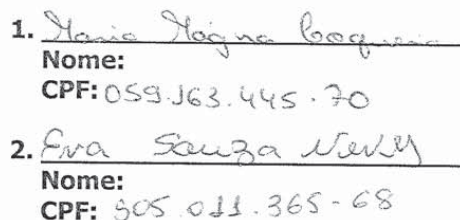 1. Maria Magna Coqueiro
Nome:
CPF: 059.163.445-70
2. Eva Souza Neves
Nome:
CPF: 905.011.365-68